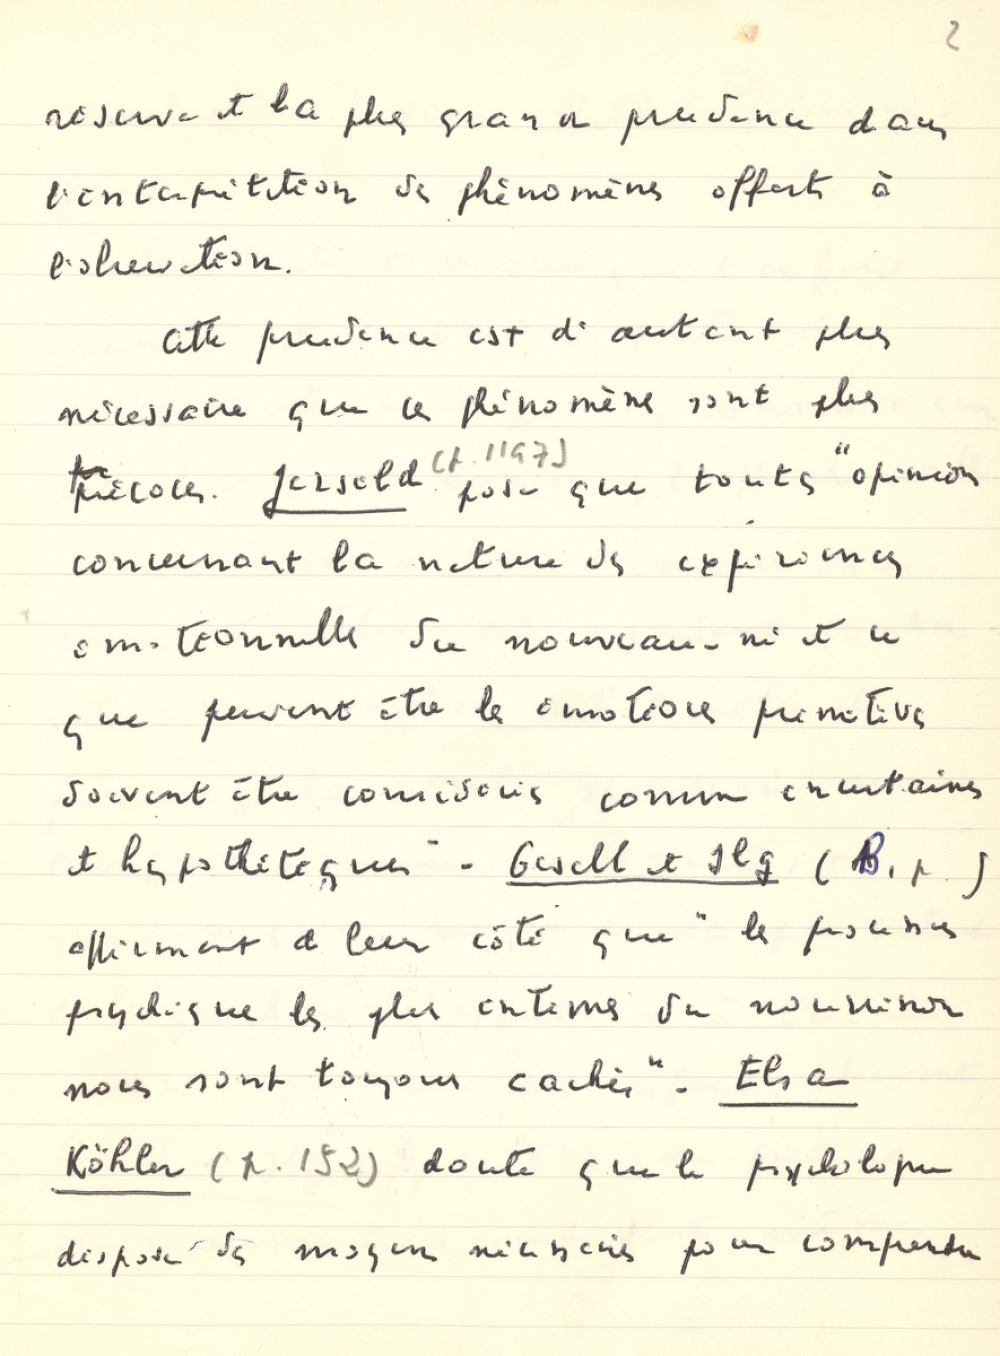 2
réserve et la plus grande prudence dans
l'interprétation des phénomènes offerts à
l'observation.
Cette prudence est d'autant plus
nécessaire que ces phénomènes sont plus
précoces. Jersold (p. 1197) pose que toutes "opinion
concernant la nature des expériences
émotionnelles du nouveau-né et ce
que peuvent être les émotions primitives
doivent être considérées comme incertaines
et hypothétiques". Gesell et Ilg (B, p. )
affirment de leur côté que "les processus
psychiques les plus intimes du nourrisson
nous sont toujours cachés". Elsa
Köhler (p. 152) doute que le psychologue
dispose des moyens nécessaires pour comprendre